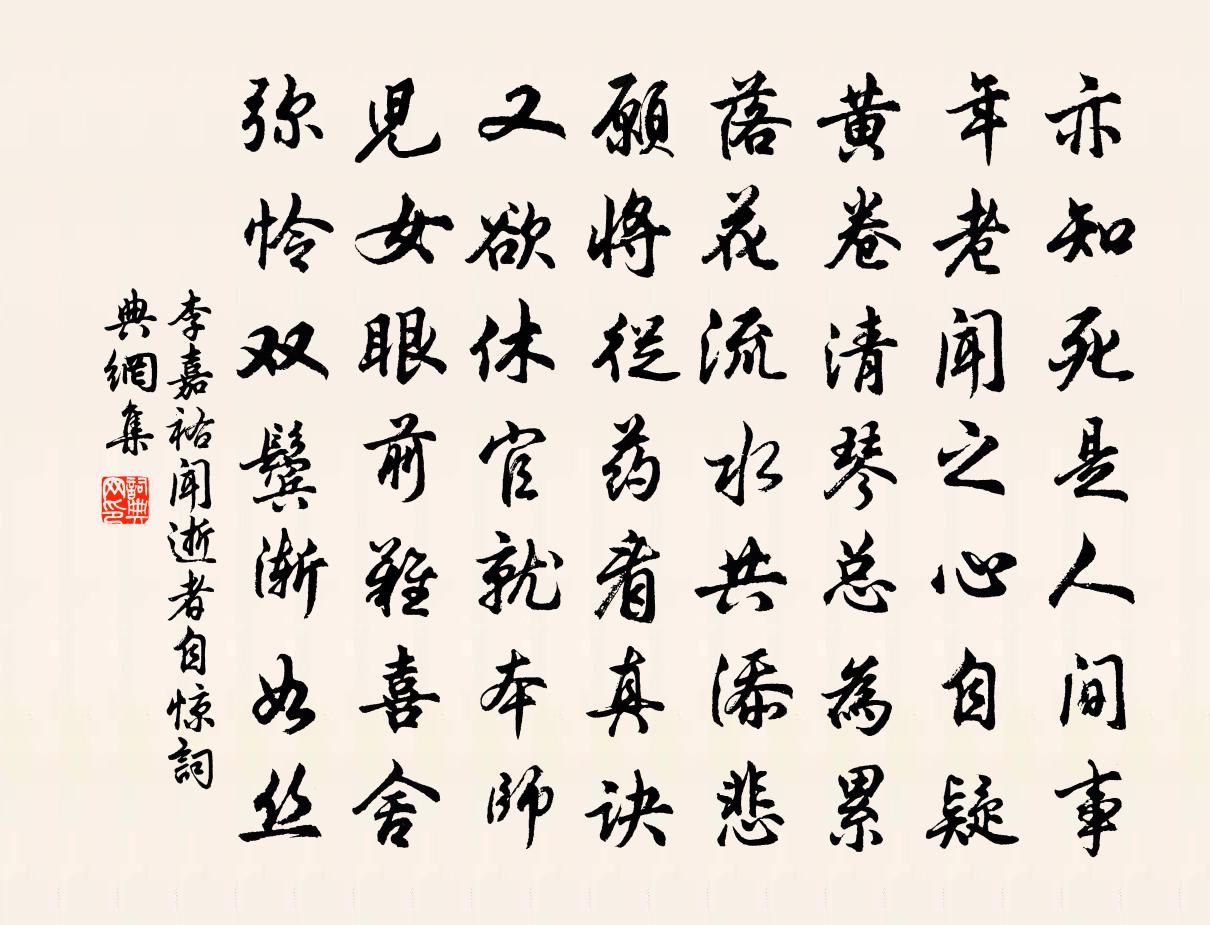 亦知死是人间事
年老闻之心自疑
黄卷清琴总為累
落花流水共添悲
願将从药看真诀
又欲休官就本师
児女眼前难喜舍
弥怜双鬓渐如丝
李嘉祐闻逝者自惊
詞典網集
詞典网印